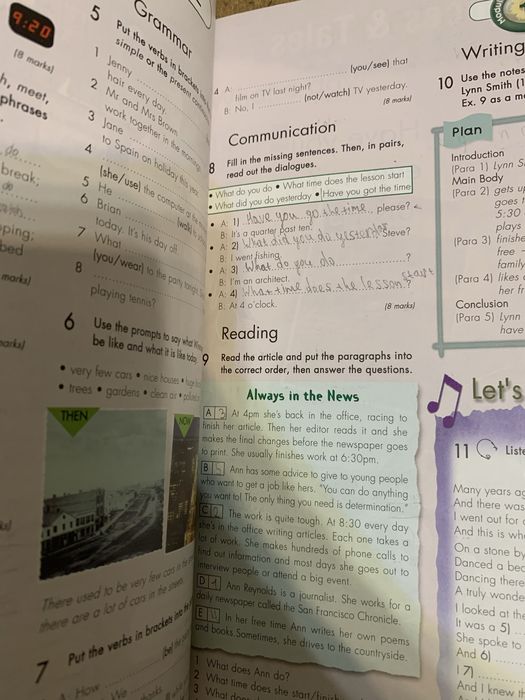 9:20
(8 marks)
h, meet,
phrases
do
break;
do
ping;
bed
marks)
marks)
Grammar
5 Put the verbs in brackets
simple or the present
1 Jenny
hair every day.
2 Mr and Mrs Brown
work together in the
3 Jane
to Spain on holiday this year
4
(she/use) the computer at the
5 He
6 Brian
(walk) to
today. It's his day off.
7 What
(you/wear) to the party tonight
8
playing tennis?
6 Use the prompts to say what
be like and what it is like today.
• very few cars • nice houses
• trees • gardens • clean air
THEN
NOW
There used to be very few cars in the
there are a lot of cars in the
7 Put the verbs in brackets into the
A: How
We
4 A: (you/see) that
film on TV last night?
B: No, I (not/watch) TV yesterday.
(8 marks)
Communication
8 Fill in the missing sentences. Then, in pairs,
read out the dialogues.
• What do you do • What time does the lesson start
• What did you do yesterday • Have you got the time
• A: 1) Have you go the time, please?
B: It's a quarter past ten.
• A: 2) What did you do yesterday Steve?
B: I went fishing.
• A: 3) What do you do ?
B: I'm an architect.
start
• A: 4) What time does the lesson ?
B: At 4 o'clock.
(8 marks)
Reading
9 Read the article and put the paragraphs into
the correct order, then answer the questions.
Always in the News
A 3 At 4pm she's back in the office, racing to
finish her article. Then her editor reads it and she
makes the final changes before the newspaper goes
to print. She usually finishes work at 6:30pm.
B 5 Ann has some advice to give to young people
who want to get a job like hers. "You can do anything
you want to! The only thing you need is determination."
C 2 The work is quite tough. At 8:30 every day
she's in the office writing articles. Each one takes a
lot of work. She makes hundreds of phone calls to
find out information and most days she goes out to
interview people or attend a big event.
D 1 Ann Reynolds is a journalist. She works for a
daily newspaper called the San Francisco Chronicle.
E In her free time Ann writes her own poems
and books. Sometimes, she drives to the countryside.
1 What does Ann do?
2 What time does she start/finish
3 What does
Writing
10 Use the notes
Lynn Smith (1
Ex. 9 as a m
Plan
Introduction
(Para 1) Lynn S
Main Body
(Para 2) gets u
goes t
5:30
plays
(Para 3) finishe
free –
family
(Para 4) likes
her fr
Conclusion
(Para 5) Lynn
have
Let's
11 Liste
Many years a
And there was
I went out for
And this is wh
On a stone b
Danced a bea
Dancing there
A truly wonde
I looked at the
It was a 5)
She spoke to
And 6)
I 7)
And I knew t